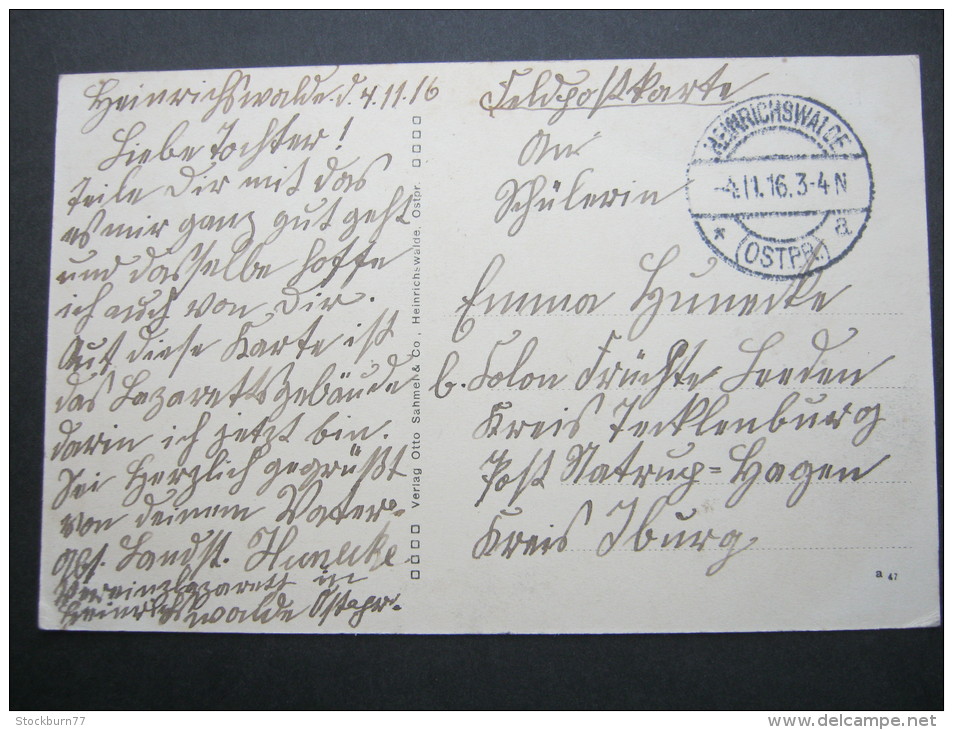 Heinrichswalde. d 4.11.16
Liebe Tochter!
Teile Dir mit das
es mir ganz gut geht
und dasselbe hoffe
ich auch von Dir.
Auf diese Karte ist
das Lazarettsgebäude
darin ich jetzt bin.
Sei Herzlich gegrüßt
von deinem Vater.
Landst. Hunecke
Vereinslazarett in
Heinrichswalde Ostpr.
Verlag Otto Sahmel & Co., Heinrichswalde, Ostpr.
Feldpostkarte
An
Schülerin
Emma Hunecke
b. Colon Früchte Leeden
Kreis Tecklenburg
Post Natrup=Hagen
Kreis Iburg
HEINRICHSWALDE
-4.11.16.3-4N
* (OSTPR.) a
a 47
Stockburn77
http://www.delcampe.net